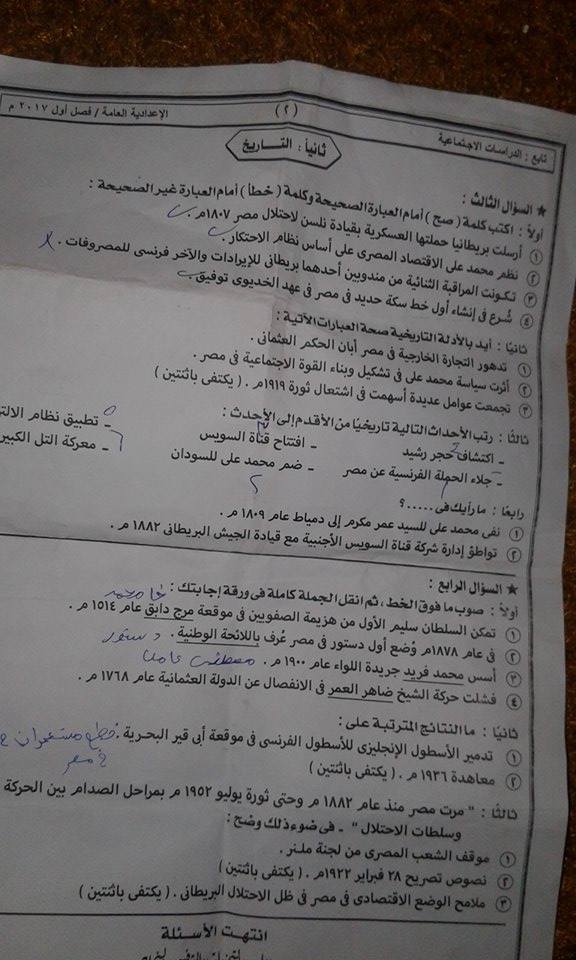 تابع : الدراسات الاجتماعية (٢) الإعدادية العامة / فصل أول ٢٠١٧ م
ثانياً : التاريخ
★ السؤال الثالث :
أولاً : اكتب كلمة ( صح ) أمام العبارة الصحيحة وكلمة ( خطأ ) أمام العبارة غير الصحيحة :
١ أرسلت بريطانيا حملتها العسكرية بقيادة نلسن لاحتلال مصر ١٨٠٧م .
٢ نظم محمد على الاقتصاد المصرى على أساس نظام الاحتكار .
٣ تكونت المراقبة الثنائية من مندوبين أحدهما بريطانى للإيرادات والآخر فرنسى للمصروفات . x
٤ شُرع فى إنشاء أول خط سكة حديد فى مصر فى عهد الخديوى توفيق .
ثانياً : أيد بالأدلة التاريخية صحة العبارات الآتية :
١ تدهور التجارة الخارجية فى مصر أبان الحكم العثمانى .
٢ أثرت سياسة محمد على فى تشكيل وبناء القوة الاجتماعية فى مصر .
٣ تجمعت عوامل عديدة أسهمت فى اشتعال ثورة ١٩١٩م . ( يكتفى باثنتين )
ثالثاً : رتب الأحداث التالية تاريخياً من الأقدم إلى الأحدث :
ـ اكتشاف حجر رشيد ـ افتتاح قناة السويس ـ تطبيق نظام
ـ جلاء الحملة الفرنسية عن مصر ـ ضم محمد على للسودان ـ معركة التل الكبير
رابعاً : ما رأيك فى ..... ؟
١ نفى محمد على للسيد عمر مكرم إلى دمياط عام ١٨٠٩ م .
٢ تواطؤ إدارة شركة قناة السويس الأجنبية مع قيادة الجيش البريطانى ١٨٨٢ م .
★ السؤال الرابع :
أولاً : صوب ما فوق الخط ، ثم انقل الجملة كاملة فى ورقة إجابتك :
١ تمكن السلطان سليم الأول من هزيمة الصفويين فى موقعة مرج دابق عام ١٥١٤ م .
٢ فى عام ١٨٧٨م وُضع أول دستور فى مصر عُرف باللائحة الوطنية . دستور
٣ أسس محمد فريد جريدة اللواء عام ١٩٠٠ م . مصطفى كامل
٤ فشلت حركة الشيخ ضاهر العمر فى الانفصال عن الدولة العثمانية عام ١٧٦٨ م .
ثانياً : ما النتائج المترتبة على :
١ تدمير الأسطول الإنجليزى للأسطول الفرنسى فى موقعة أبى قير البحرية .
٢ معاهدة ١٩٣٦ م . ( يكتفى باثنتين ) مصر
ثالثاً : " مرت مصر منذ عام ١٨٨٢ م وحتى ثورة يوليو ١٩٥٢ م بمراحل الصدام بين الحركة
وسلطات الاحتلال " ـ فى ضوء ذلك وضح :
١ موقف الشعب المصرى من لجنة ملنر .
٢ نصوص تصريح ٢٨ فبراير ١٩٢٢م . ( يكتفى باثنتين )
٣ ملامح الوضع الاقتصادى فى مصر فى ظل الاحتلال البريطانى . ( يكتفى باثنتين )
انتهت الأسئلة